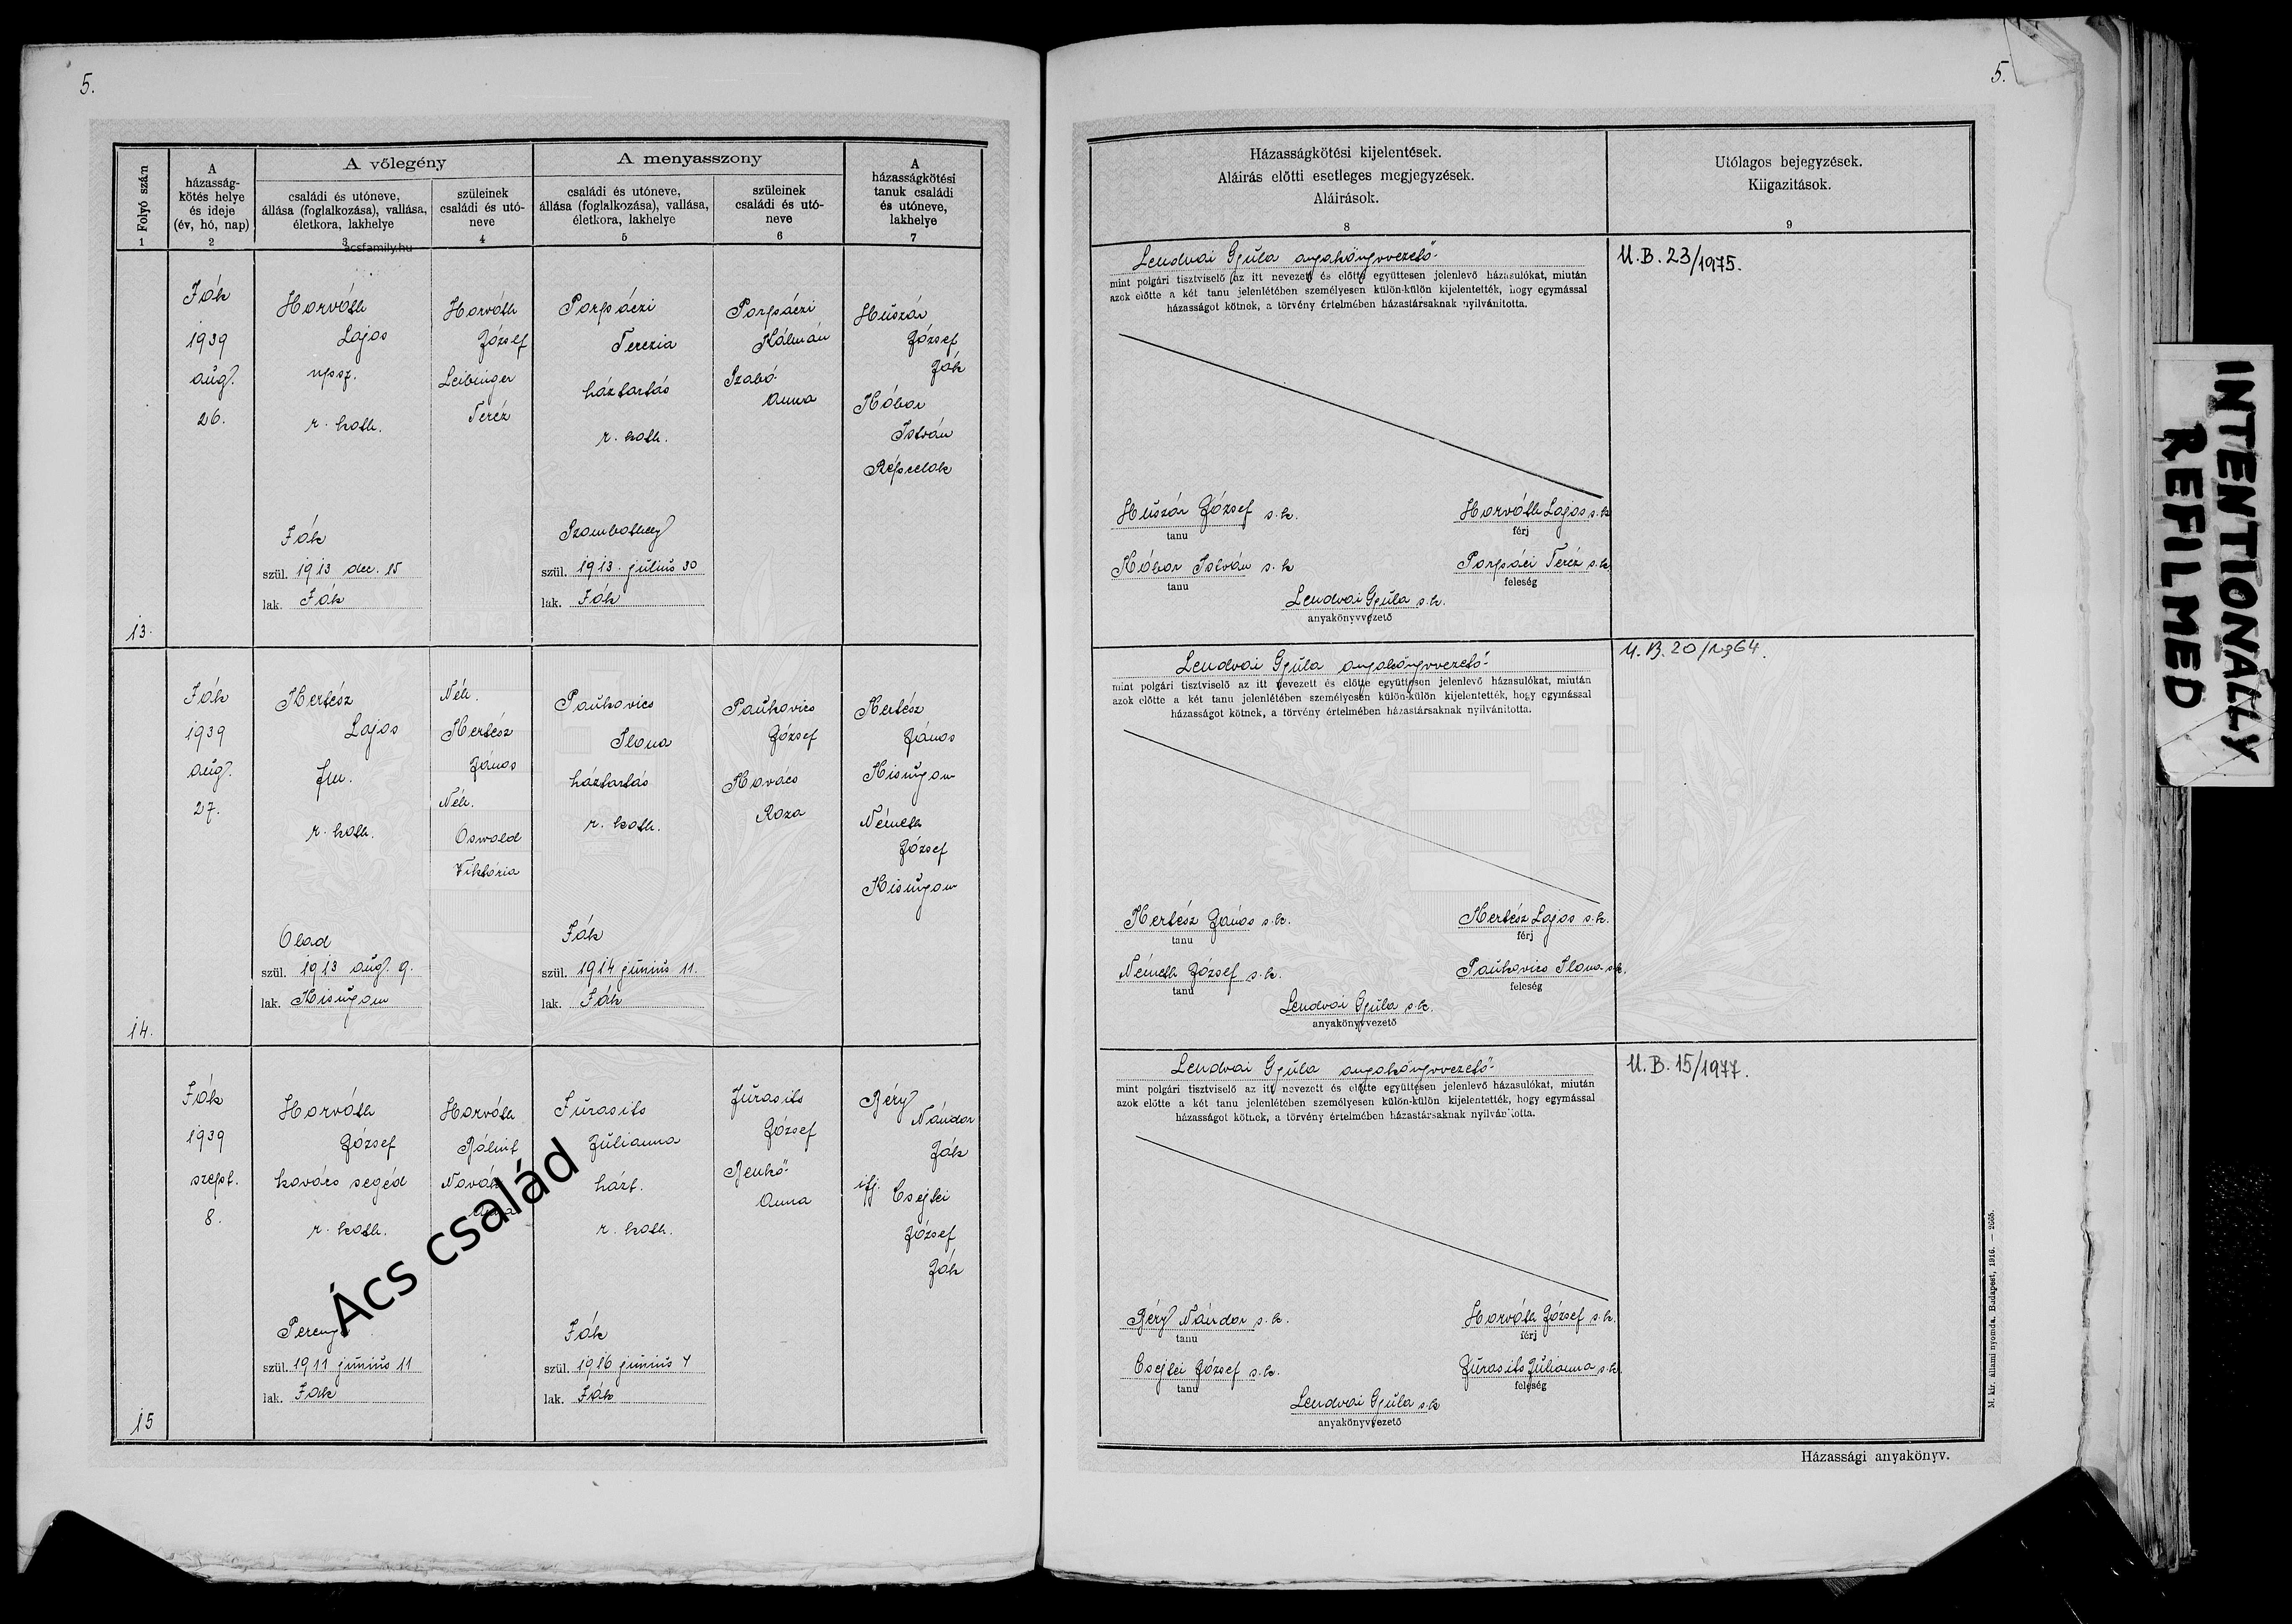 5.
5.
Folyó szám
A házasság-
kötés helye
és ideje
(év, hó, nap)
A vőlegény
családi és utóneve,
állása (foglalkozása), vallása,
életkora, lakhelye
szüleinek
családi és utó-
neve
A menyasszony
családi és utóneve,
állása (foglalkozása), vallása,
életkora, lakhelye
szüleinek
családi és utó-
neve
A
házasságkötési
tanuk családi
és utóneve,
lakhelye
1 2 3 4 5 6 7
acsfamily.hu
13.
Ják
1939
aug.
26.
Horváth
Lajos
npsz.
r. kath.
Ják
szül. 1913 dec. 15
lak. Ják
Horváth
József
Leibinger
Teréz
Porpáczi
Terezia
háztartás
r. kath.
Szombathely
szül. 1913. július 30
lak. Ják
Porpáczi
Kálmán
Szabó
Anna
Huszár
József
Ják
Kóbor
István
Répcelak
14.
Ják
1939
aug.
27.
Kertész
Lajos
fm.
r. kath.
Olad
szül. 1913 aug. 9.
lak. Kisunyom
Néh.
Kertész
János
Néh.
Oswald
Viktória
Paukovics
Ilona
háztartás
r. kath.
Ják
szül. 1914 június 11.
lak. Ják
Paukovics
József
Kovács
Roza
Kertész
János
Kisunyom
Németh
József
Kisunyom
15
Ják
1939
szept.
8.
Horváth
József
kovács segéd
r. kath.
Perenye
szül. 1911 június 11
lak. Ják
Horváth
Bálint
Novák
Jurasits
Julianna
házt.
r. kath.
Ják
szül. 1916 június 4
lak. Ják
Jurasits
József
Benkő
Anna
Béry
Nándor
Ják
ifj. Csejtei
József
Ják
Ács család
Házasságkötési kijelentések.
Aláirás előtti esetleges megjegyzések.
Aláirások.
8
Utólagos bejegyzések.
Kiigazitások.
9
Lendvai Gyula anyakönyvvezető
mint polgári tisztviselő az itt nevezett és előtte együttesen jelenlevő házasulókat, miután
azok előtte a két tanu jelenlétében személyesen külön-külön kijelentették, hogy egymással
házasságot kötnek, a törvény értelmében házastársaknak nyilvánitotta.
U.B. 23/1975.
Huszár József s.k.
tanu
Horváth Lajos s.k.
férj
Kóbor István s.k
tanu
Porpáci Teréz s.k
feleség
Lendvai Gyula s.k.
anyakönyvvezető
Lendvai Gyula anyakönyvvezető
mint polgári tisztviselő az itt nevezett és előtte együttesen jelenlevő házasulókat, miután
azok előtte a két tanu jelenlétében személyesen külön-külön kijelentették, hogy egymással
házasságot kötnek, a törvény értelmében házastársaknak nyilvánitotta.
U.B. 20/1964.
Kertész János s.k.
tanu
Kertész Lajos s.k.
férj
Németh József s.k.
tanu
Paukovics Ilona s.k.
feleség
Lendvai Gyula s.k.
anyakönyvvezető
Lendvai Gyula anyakönyvvezető
mint polgári tisztviselő az itt nevezett és előtte együttesen jelenlevő házasulókat, miután
azok előtte a két tanu jelenlétében személyesen külön-külön kijelentették, hogy egymással
házasságot kötnek, a törvény értelmében házastársaknak nyilvánitotta.
U.B. 15/1977.
Béry Nándor s.k.
tanu
Horváth József s.k.
férj
Csejtei József s.k.
tanu
Jurasits Julianna s.k.
feleség
Lendvai Gyula s.k
anyakönyvvezető
M. kir. állami nyomda. Budapest, 1916. — 2665.
Házassági anyakönyv.
INTENTIONALLY
REFILMED